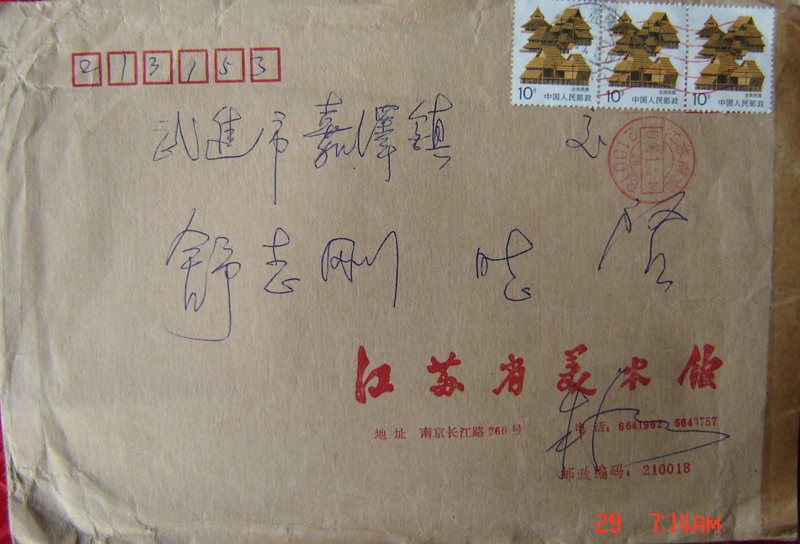 213153
10分 中国人民邮政
10分 中国人民邮政
10分 中国人民邮政
武進市嘉澤鎮
舒志刚 启
江苏省美术馆
地址 南京长江路266号 电话: 6641962 6643757
邮政编码: 210018
29 7:14AM